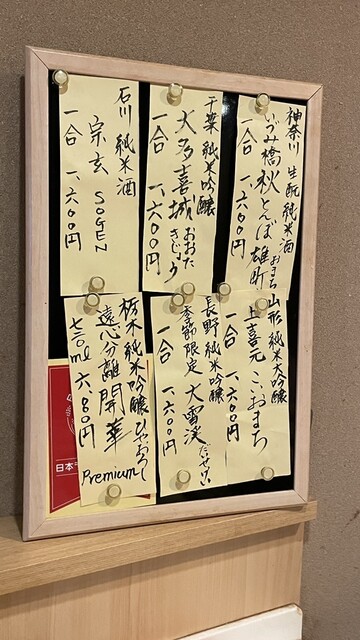 神奈川 生酛純米酒
いづみ橋 秋とんぼ 雄町
おまち
一合 一、六〇〇円
千葉 純米吟醸
大多喜城 おおたきじょう
一合 一、六〇〇円
石川 純米酒
宗玄 SOGEN
一合 一、六〇〇円
山形 純米大吟醸
上喜元 こ、おまち
一合 一、六〇〇円
長野 純米吟醸
季節限定 大雪渓 だいせっけい
一合 一、六〇〇円
栃木 純米吟醸 ひやおろし
遠心分離 開華 Premium
七二〇ml 六、六〇〇円
日本